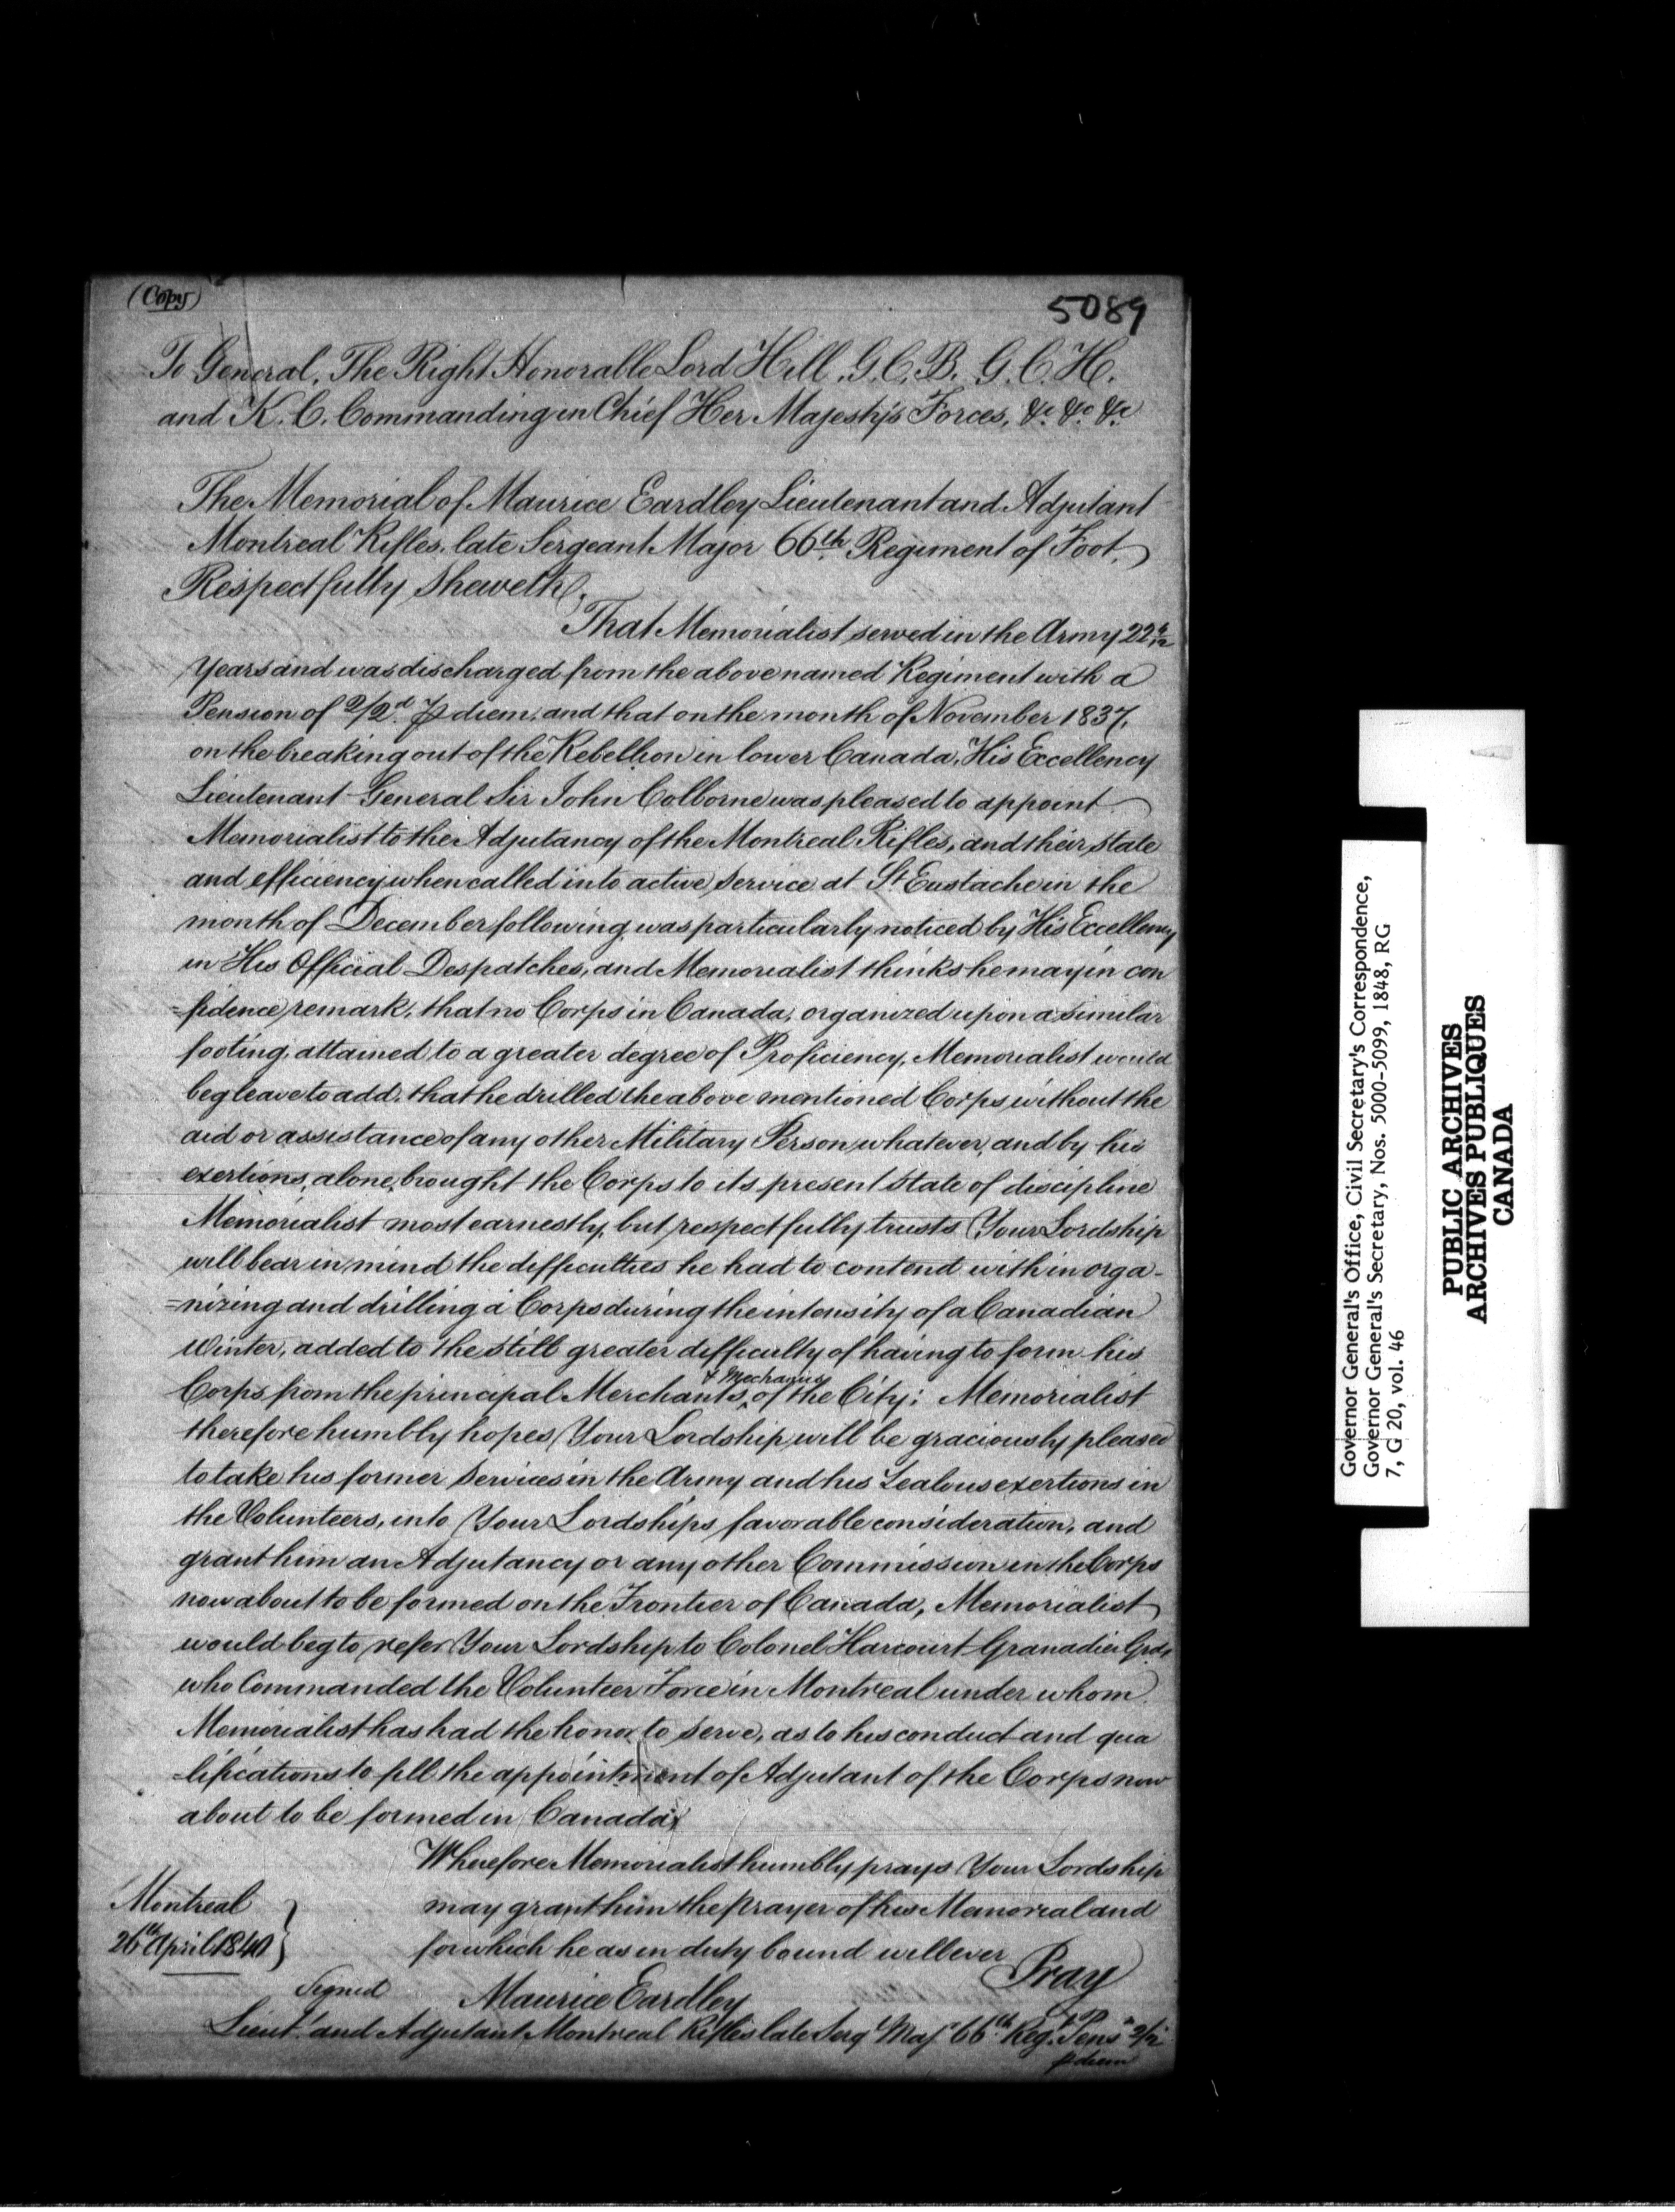 (Copy)
5089
To General, The Right Honorable Lord Hill, G.C.B. G.C.H.
and K.C. Commanding in Chief Her Majesty's Forces, &c &c &c
The Memorial of Maurice Eardley Lieutenant and Adjutant
Montreal Rifles, late Sergeant Major 66th Regiment of Foot,
Respectfully Sheweth,
That Memorialist served in the Army 22
Years and was discharged from the above named Regiment with a
Pension of 2/2d. P diem, and that on the month of November 1837,
on the breaking out of the Rebellion in lower Canada, His Excellency
Lieutenant General Sir John Colborne was pleased to appoint
Memorialist to the Adjutancy of the Montreal Rifles, and their state
and efficiency when called into active service at St Eustache in the
month of December following was particularly noticed by His Excellency
in His Official Despatches, and Memorialist thinks he may in con
=fidence remark, that no Corps in Canada, organized upon a similar
footing, attained to a greater degree of Proficiency, Memorialist would
beg leave to add, that he drilled the above mentioned Corps without the
aid or assistance of any other Military Person whatever, and by his
exertions, alone, brought the Corps to its present state of discipline
Memorialist most earnestly, but respectfully trusts Your Lordship
will bear in mind the difficulties he had to contend with in orga-
=nizing and drilling a Corps during the intensity of a Canadian
Winter, added to the still greater difficulty of having to form his
Corps from the principal Merchants & Mechanics of the City; Memorialist
therefore humbly hopes Your Lordship will be graciously pleased
to take his former services in the Army and his Zealous exertions in
the Volunteers, into Your Lordships favorable consideration, and
grant him an Adjutancy or any other Commission in the Corps
now about to be formed on the Frontier of Canada, Memorialist
would beg to refer Your Lordship to Colonel Harcourt Granadier Gds,
who Commanded the Volunteer Force in Montreal under whom
Memorialist has had the honor to serve, as to his conduct and qua
=lifications to fill the appointment of Adjutant of the Corps now
about to be formed in Canada,
Wherefore Memorialist humbly prays Your Lordship
may grant him the prayer of his Memorial and
for which he as in duty bound will ever
Pray
Montreal
26th April 1840
Signed Maurice Eardley
Lieut. and Adjutant Montreal Rifles late Serg. Maj. 66th Reg. Pens. 2/2
p diem
Governor General's Office, Civil Secretary's Correspondence,
Governor General's Secretary, Nos. 5000-5099, 1848, RG
7, G 20, vol. 46
PUBLIC ARCHIVES
ARCHIVES PUBLIQUES
CANADA